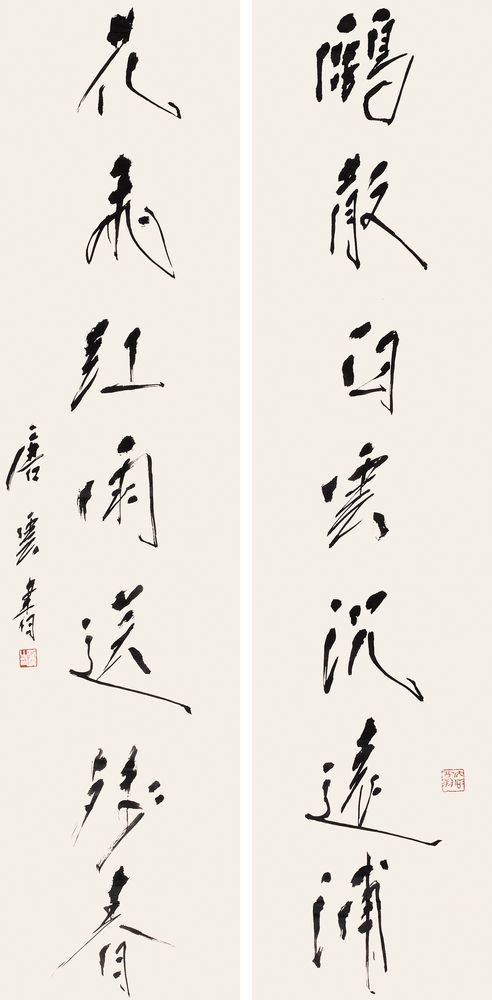 鷗散白雲沉遠浦
花飛紅雨送殘春
唐雲書